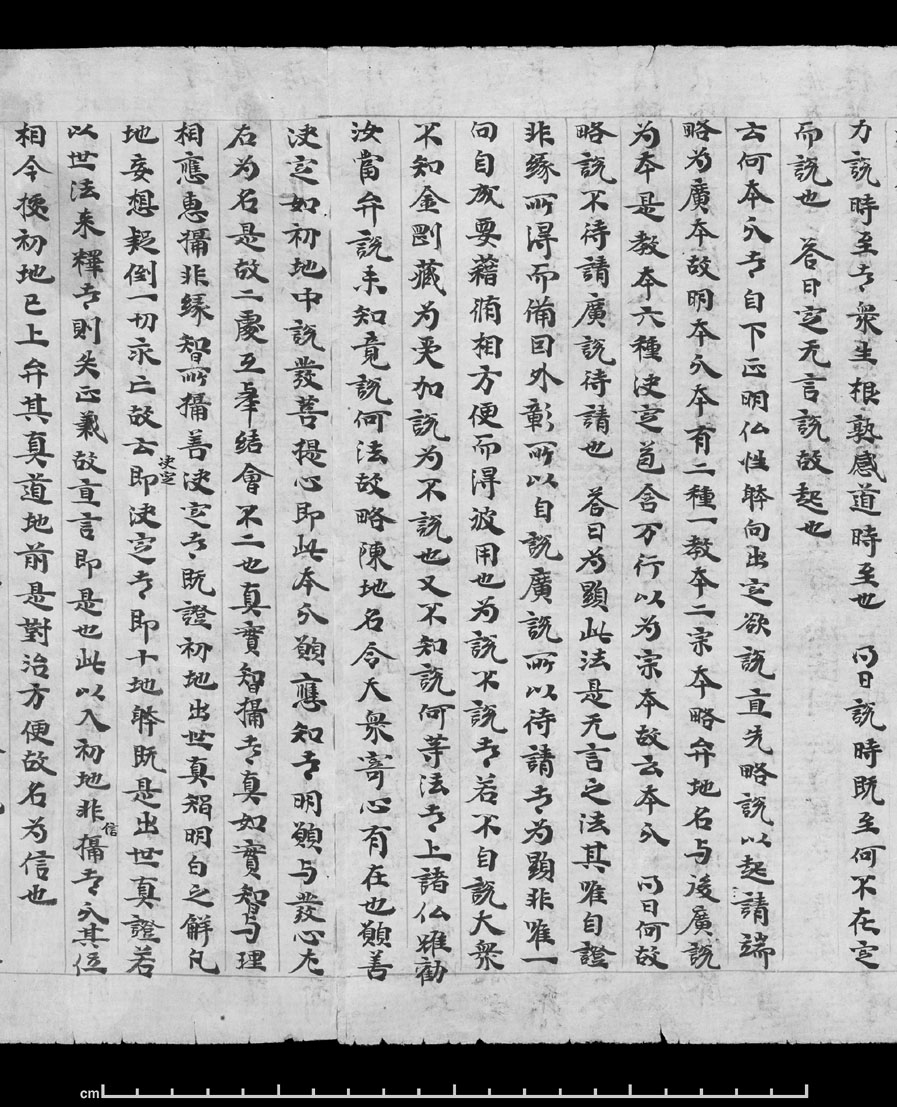 力說時至者眾生根孰感道時至也　問曰說時既至何不在定
而說也　答曰定无言說故起也
云何本分者自下正明仏性躰向出定欲說直先略說以起請端
略為廣本故明本分本有二種一教本二宗本略弁地名与後廣說
為本是教本六種決定苞含万行以為宗本故云本分　問曰何故
略說不待請廣說待請也　答曰為顯此法是无言之法其唯自證
非緣所得而備因外彰所以自說廣說所以待請者為顯非唯一
向自成要藉脩相方便而得波用也為說不說者若不自說大眾
不知金剛藏為更加說為不說也又不知說何等法者上諸仏雖勸
汝當弁說未知竟說何法故略陳地名令大眾寄心有在也願善
決定如初地中說發菩提心即此本分願應知者明願与發心左
右為名是故二處互舉結會不二也真實智攝者真如實智与理
相應惠攝非緣智所攝善決定者既證初地出世真智明白之解凡
地妄想疑倒一切永亡故云即決定決定者即十地躰既是出世真證若
以世法來釋者則失正義故直言即是也此以入初地非信攝者分其位
相令揆初地已上弁其真道地前是對治方便故名為信也
cm